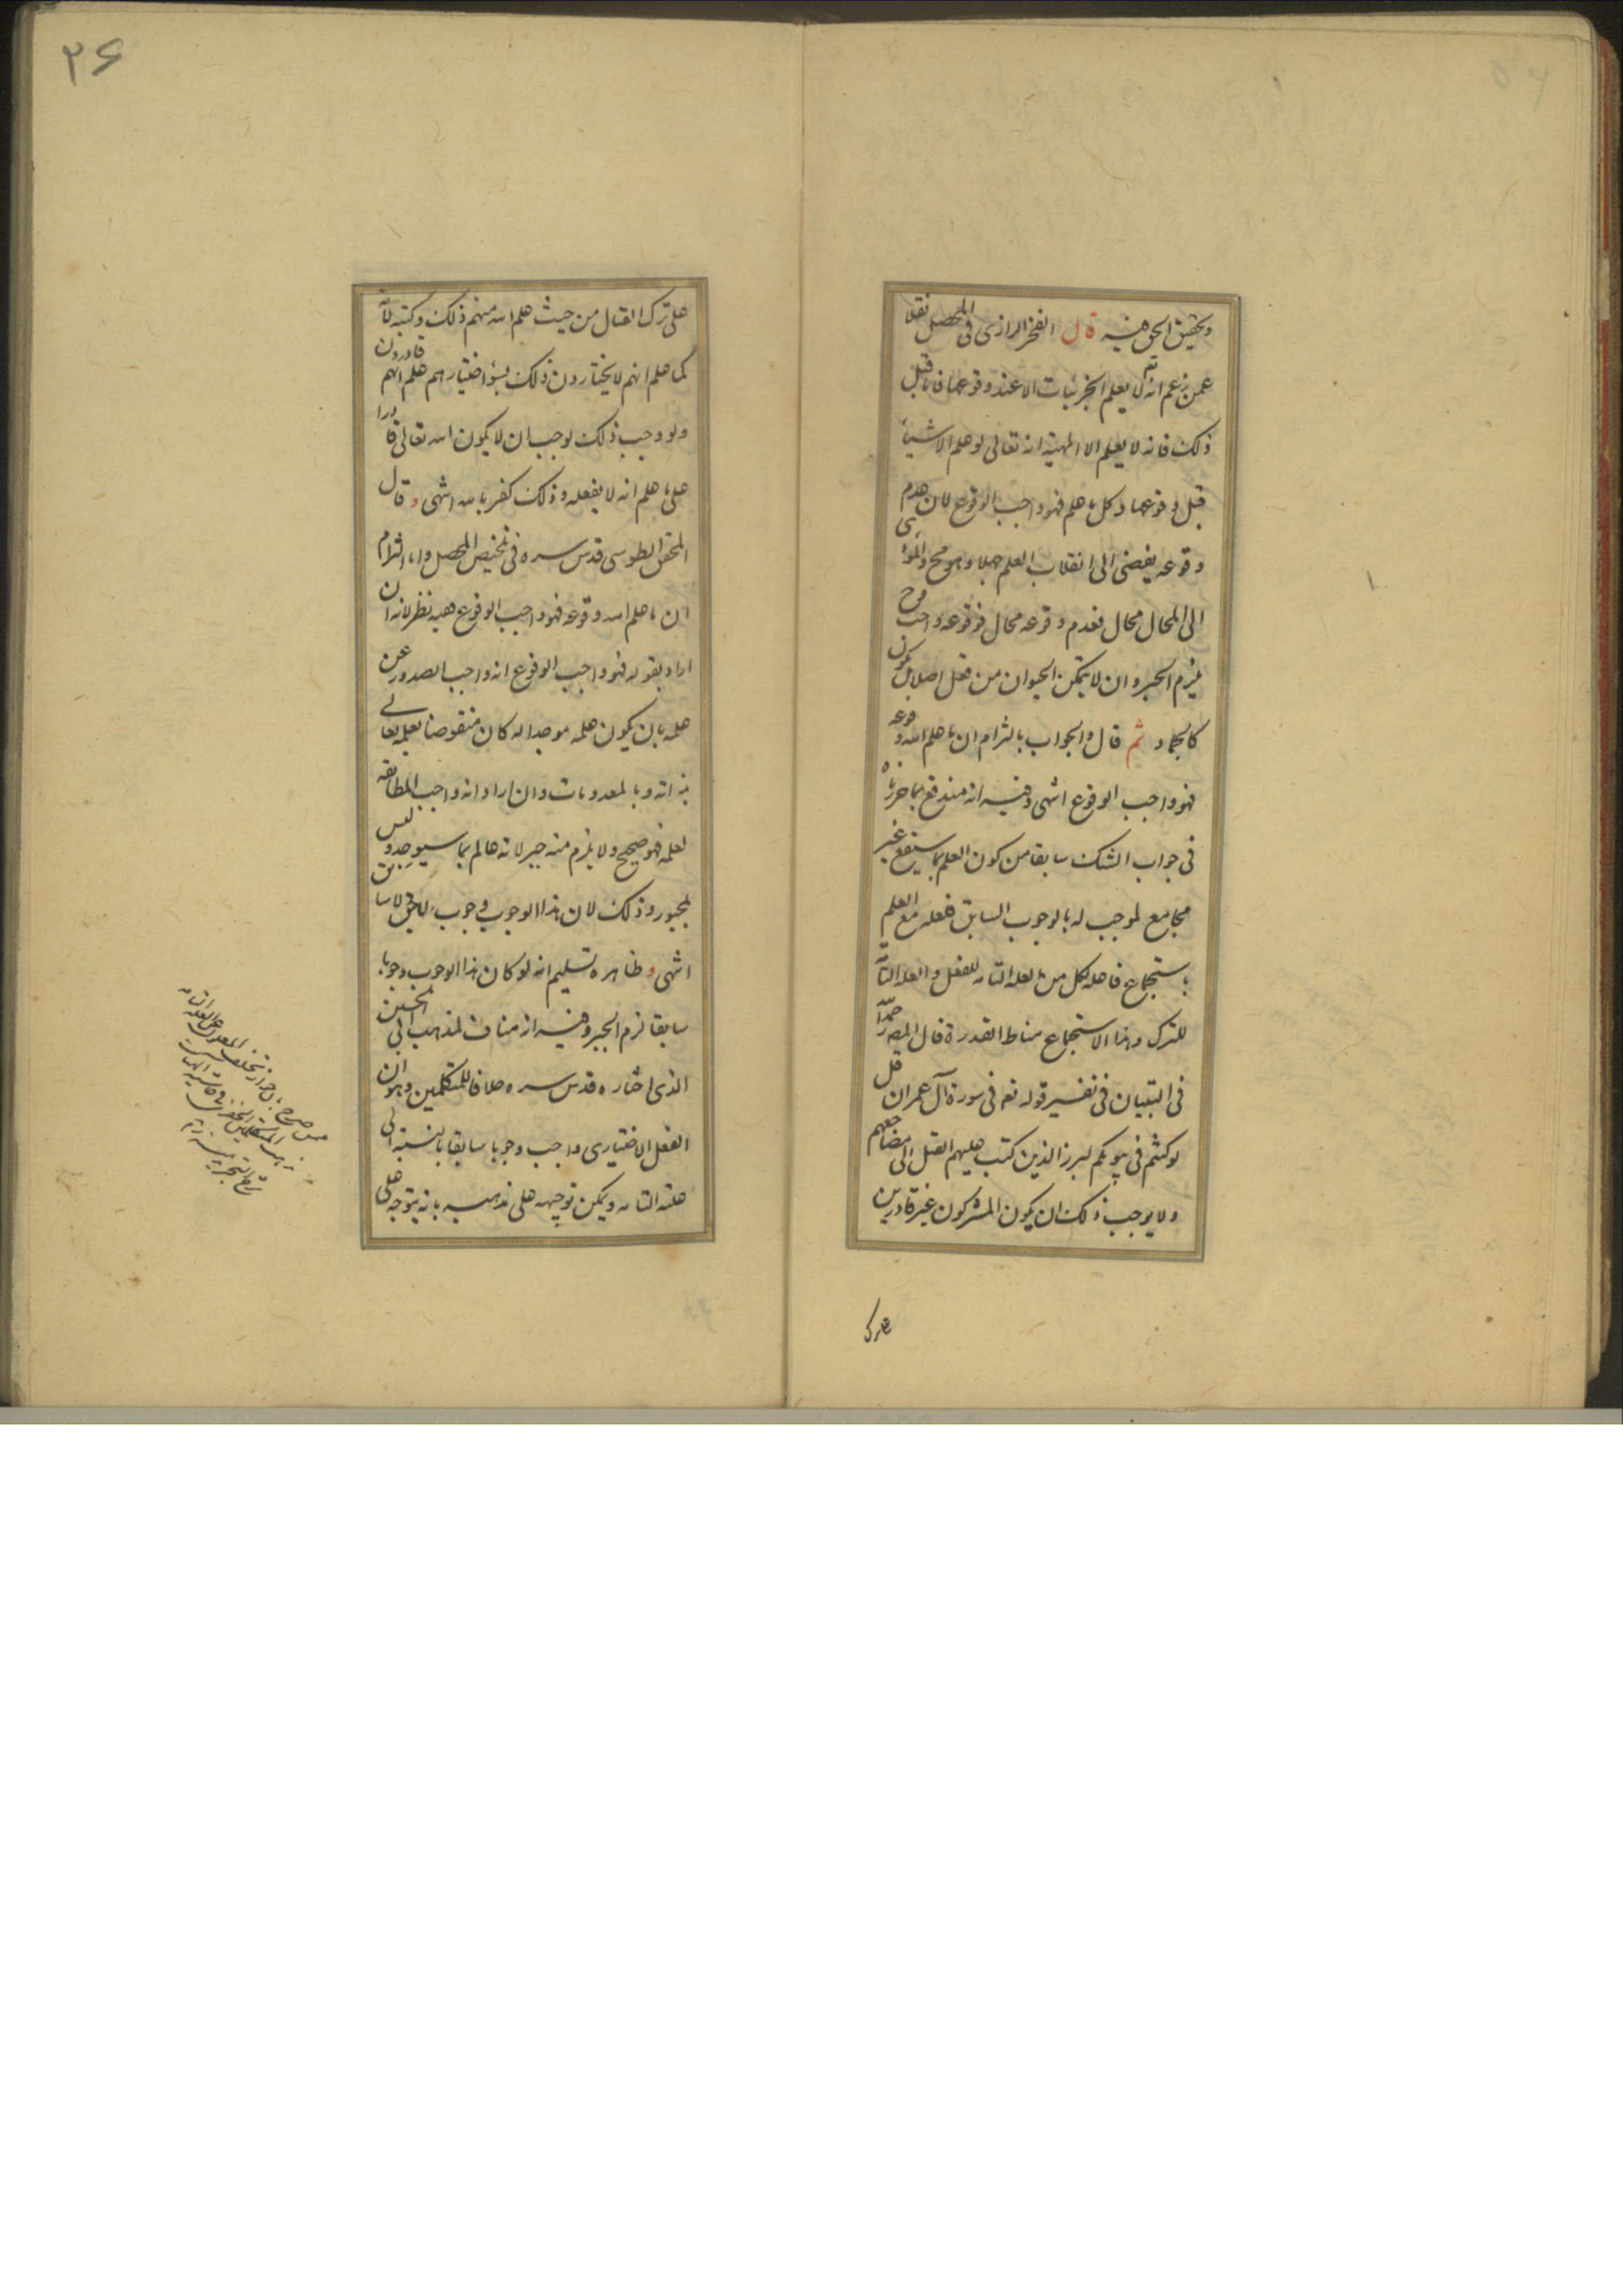 وتحقيق الحق فيه قال الفخر الرازى فى المحصل نقلا
عمن زعم انه تع لا يعلم الجزئيات الا عند وقوعها فاما قبل
ذلك فانه لا يعلم الا المهية انه تعالى لو علم الاشياء
قبل وقوعها وكل ما علم فهو واجب الوقوع لان عدم
وقوعه يفضى الى انقلاب العلم جهلا وهو مح والمؤدى
الى المحال محال فعدم وقوعه محال فوقوعه واجب فح
يلزم الجبر وان لا يتمكن الحيوان من فعل اصلا بل يكون
كالجماد ثم قال والجواب بالتزام ان ما علم الله وقوعه
فهو واجب الوقوع انتهى وفيه انه مندفع بما حررناه
فى جواب الشك سابقا من كون العلم بما سيقع غير
مجامع لموجب له بالوجوب السابق ففعله مع العلم
باستجماع فاعله لكل من العلة التامة للفعل والعلة التامة
للترك وهذا الاستجماع مناط القدرة قال المصـ
فى التبيان فى تفسير قوله تعـ فى سورة آل عمران قل
لو كنتم فى بيوتكم لبرز الذين كتب عليهم القتل الى مضاجعهم
ولا يوجب ذلك ان يكون المشركون غير قادرين
على ترك
٣۶
على ترك القتال من حيث علم الله منهم ذلك وكتبه لانه
كما علم انهم لا يختارون ذلك بسؤ اختيارهم علم انهم قادرون
ولو وجب ذلك لوجب ان لا يكون الله تعالى قادرا
على ما علم انه لا يفعله وذلك كفر بالله انتهى وقال
المحقق الطوسى قدس سره فى تلخيص المحصل واما التزام
ان ما علم الله وقوعه فهو واجب الوقوع ففيه نظر لانه ان
اراد بقوله فهو واجب الوقوع انه واجب الصدور عن
علمه بان يكون علمه موجدا له كان منقوضا بعلمه تعالى
بذاته وبالمعدومات وان اراد انه واجب المطابقة
لعلمه فهو صحيح ولا يلزم منه جبر لانه عالم بما سيوجد وليس
بمجبور وذلك لان هذا الوجوب وجوب لاحق لا سابق
انتهى وظاهره تسليم انه لو كان هذا الوجوب وجوبا
سابقا لزم الجبر وفيه انه مناف لمذهب ابى الحسين
الذى اختاره قدس سره خلافا للمتكلمين وهو ان
الفعل الاختيارى واجب وجوبا سابقا بالنسبة الى
علته التامه ويمكن توجيهه على مذهبه بانه يتوجه على